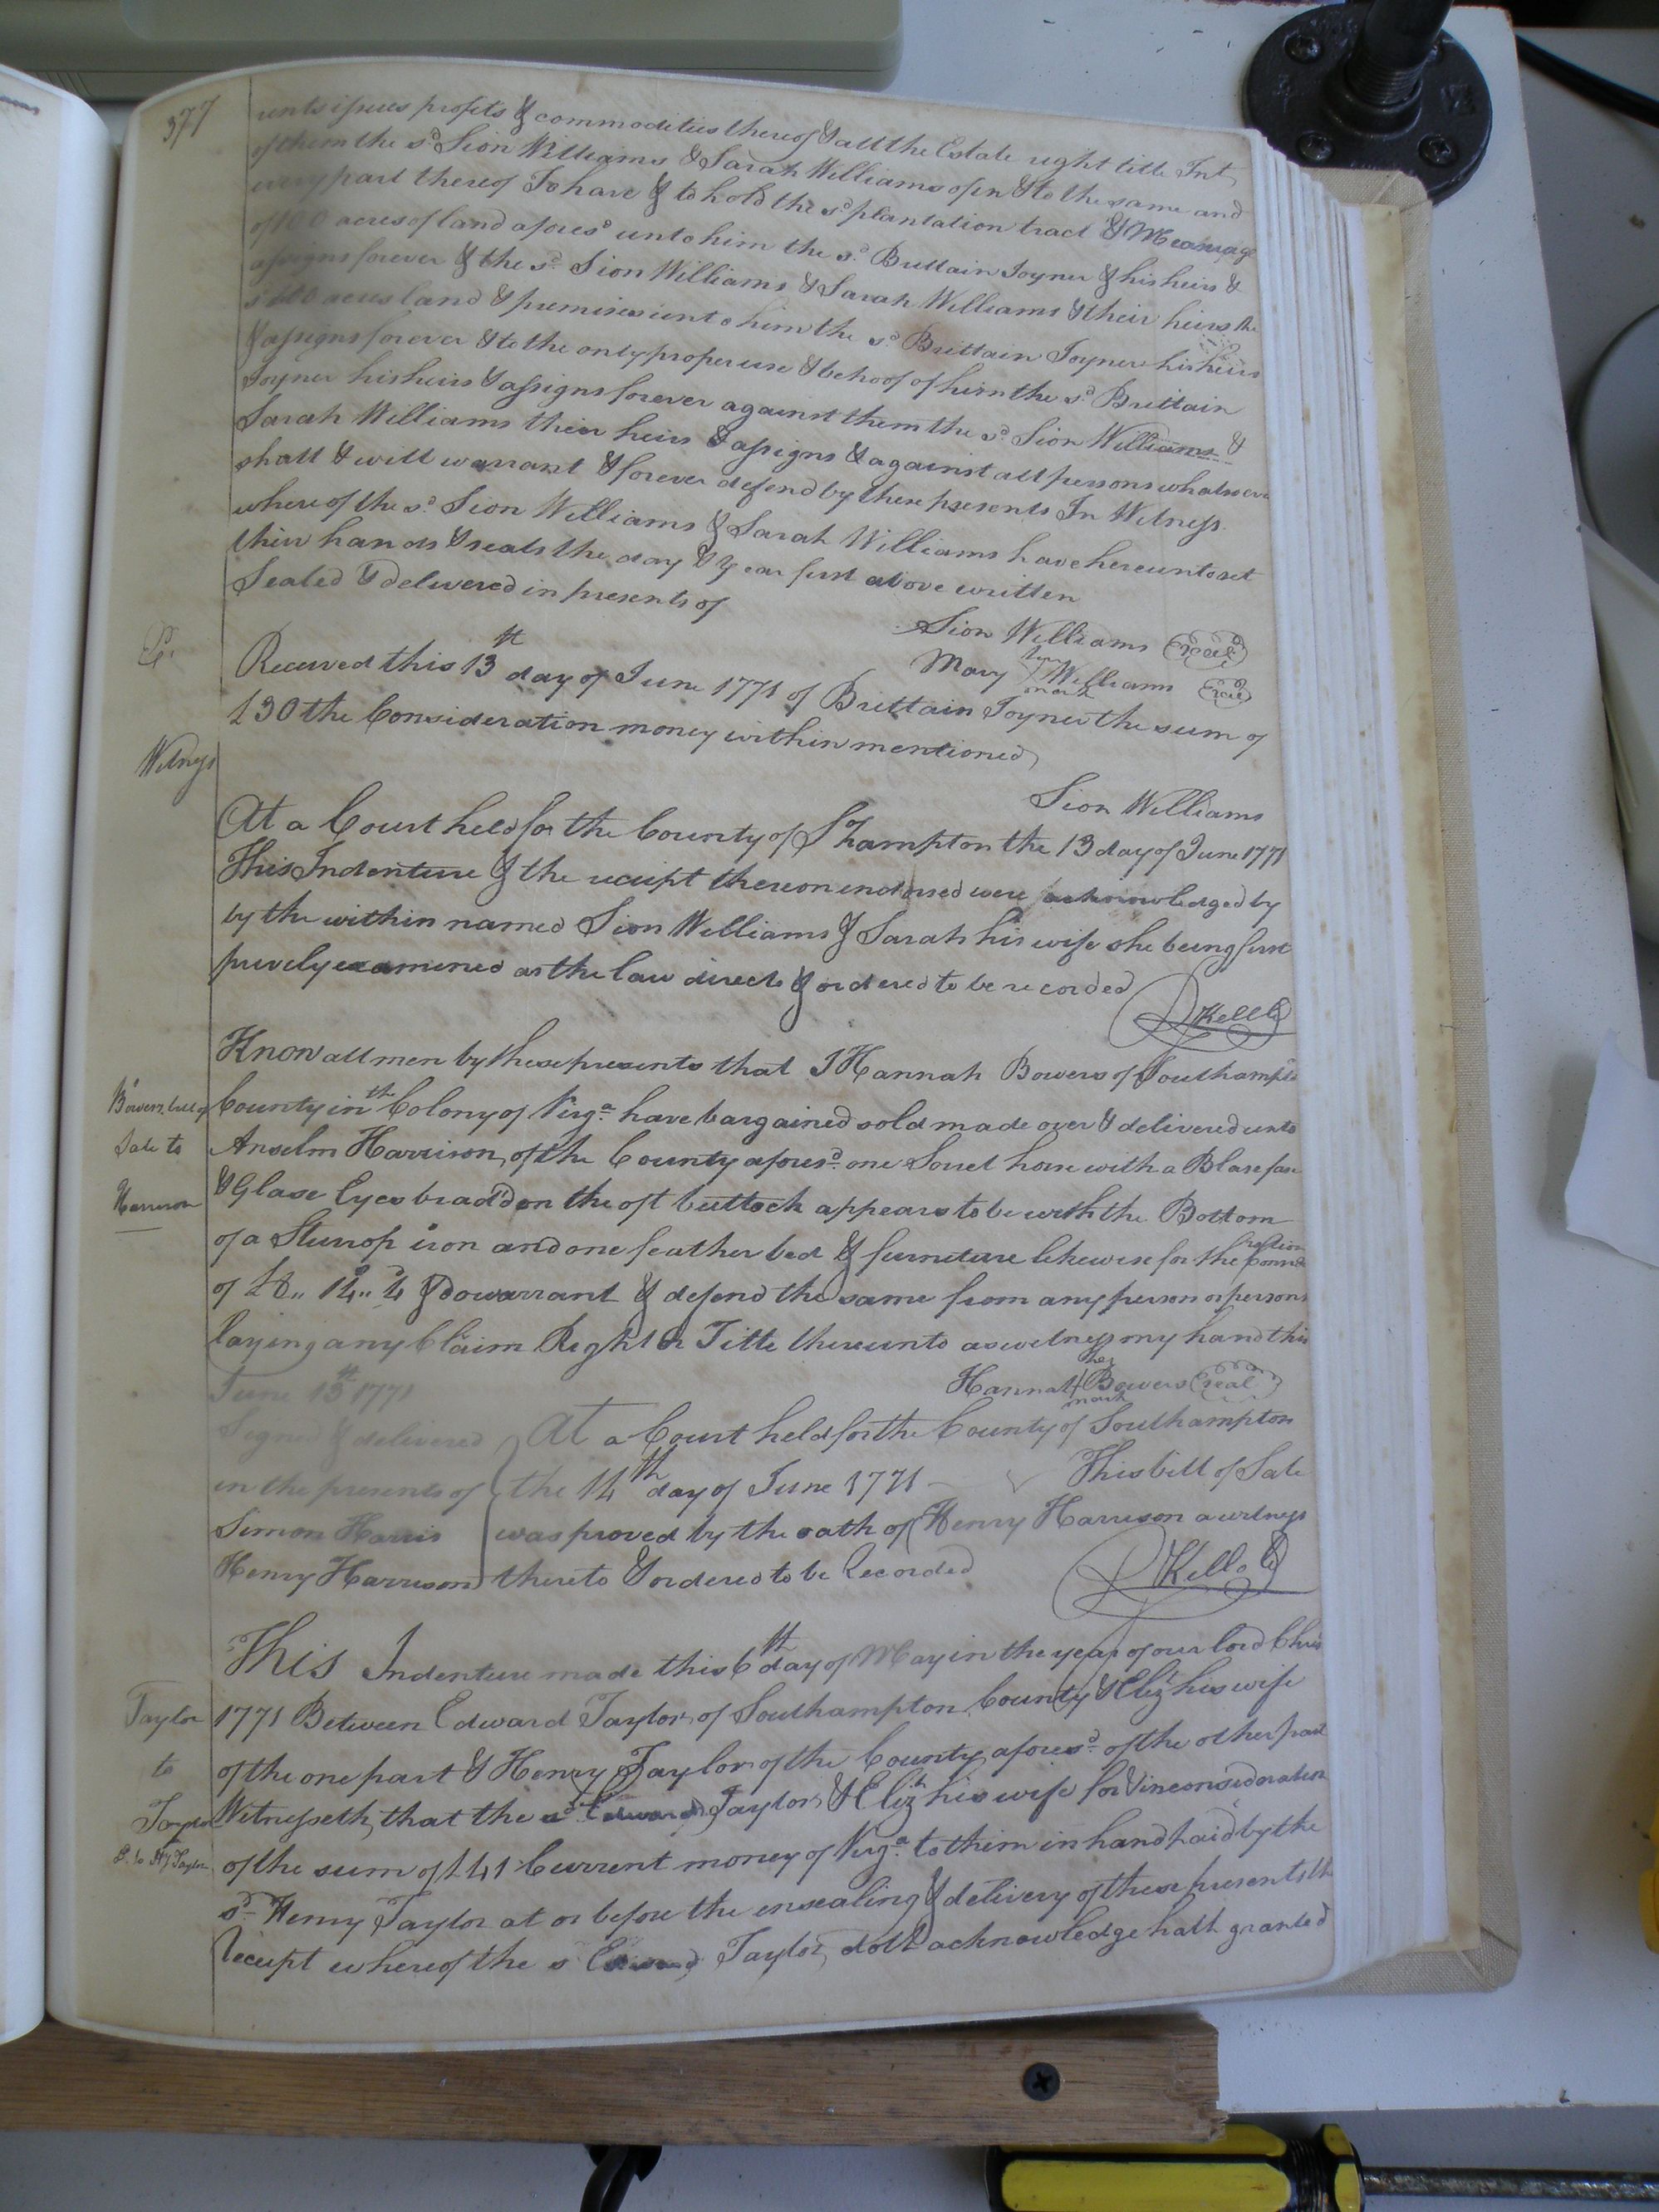 377
rents issues profits & commodities thereof & all the Estate right title Int
of them the sd Sion Williams & Sarah Williams of in & to the same and
every part thereof To have & to hold the sd plantation tract & Meassage
of 100 acres of land aforesd unto him the sd Brittain Joyner & his heirs &
assigns forever & the sd Sion Williams & Sarah Williams & their heirs the
sd 100 acres land & premises unto him the sd Brittain Joyner his heirs
& assigns forever & to the only proper use & behoof of him the sd Brittain
Joyner his heirs & assigns forever against them the sd Sion Williams &
Sarah Williams their heirs & assigns & against all persons whatsoever
shall & will warrant & forever defend by these presents In Witness
whereof the sd Sion Williams & Sarah Williams have hereunto set
their hands & seals the day & year first above written
Sealed & delivered in presents of
Sion Williams (seal)
Mary her mark Williams (seal)
Received this 13th day of June 1771 of Brittain Joyner the sum of
£30 the Consideration money within mentioned
Witness
Sion Williams
At a Court held for the County of Sohampton the 13 day of June 1771
This Indenture & the reciept thereon endorsed were acknowledged by
by the within named Sion Williams & Sarah his wife she being first
privelyexamened as the law directs & ordered to be recorded
Kello
Know all men by these presents that I Hannah Bowers of Southampto
Bowers bill of
Sale to
Harrison
County in the Colony of Virga have bargained sold made over & delivered unto
Anselm Harrison, of the County aforesd one Sorrel horse with a Blase face
& Glase Eyes bradd on the oft buttock appears to be with the Bottom
of a Sturrop iron and one feather bed & furneture likewise for the
of £8,, 14,, 4 & do warrant & defend the same from any person or persons
laying any Claim Right or Title thereunto as witness my hand this
June 13th 1771
Hannah her mark Bowers (seal)
Signed & delivered
in the presents of
Simon Harris
Henry Harrison
At a Court held for the County of Southampton
the 14th day of June 1771 This bill of Sale
was proved by the oath of Henry Harrison a witness
thereto & ordered to be Recorded
Kello
This Indenture made this 6th day of May in the year of our lord Chris
Taylor
to
Taylor
1771 Between Edward Taylor, of Southampton County & Elizt his wife
of the one part & Henry Taylor of the County aforesd of the other part
Witnesseth, that the sd Edward Taylor & Elizh his wife for & in consideration
of the sum of £41 Current money of Virga to them in hand paid by the
sd Henry Taylor at or before the ensealing & delivery of these presents the
Receipt whereof the s Edward Taylor, doth acknowledge hath granted